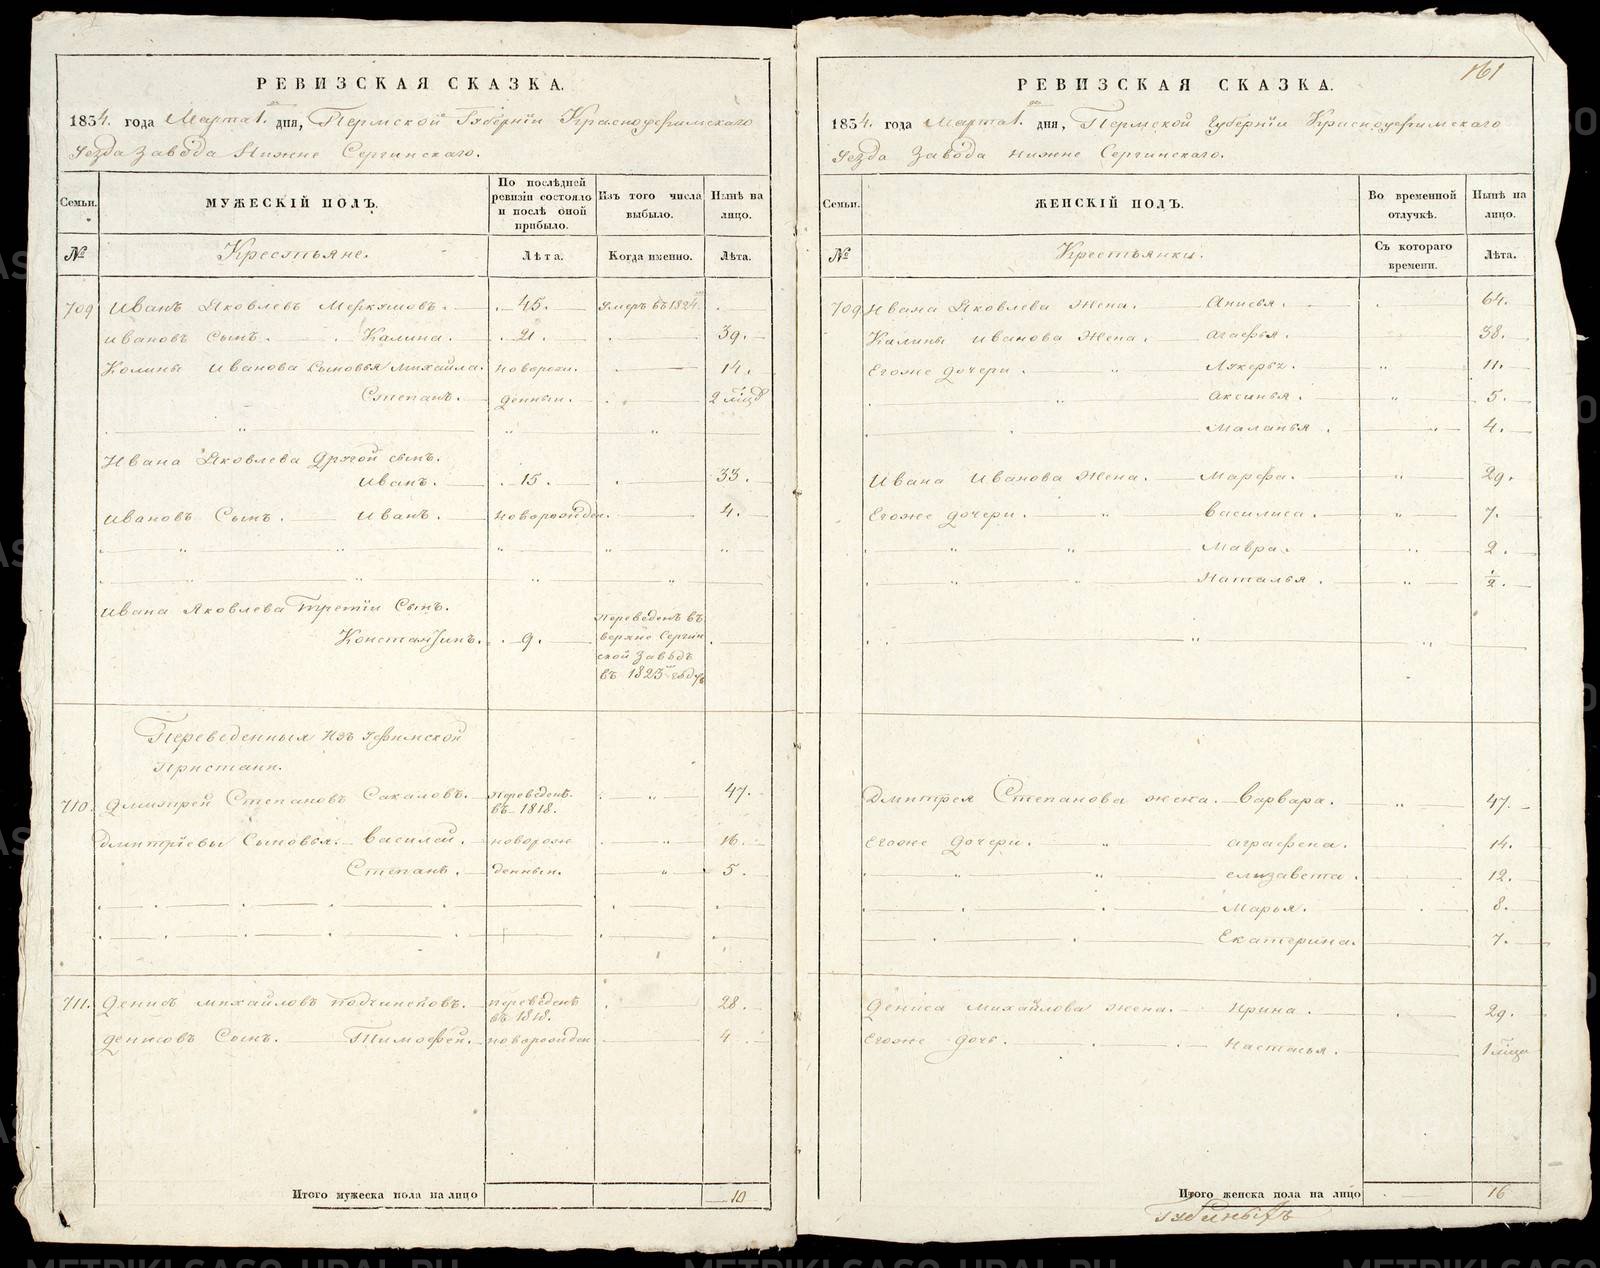 РЕВИЗСКАЯ СКАЗКА.
1834. года Марта 1. дня, Пермской Губерніи Красноуфимскаго
Уезда Завода Нижне Сергинскаго.
Семьи.
МУЖЕСКІЙ ПОЛЪ.
По послѣдней ревизіи состояло и послѣ оной прибыло.
Изъ того числа выбыло.
Нынѣ на лицо.
№
Крестьяне.
Лѣта.
Когда именно.
Лѣта.
709 Иванъ Яковлевъ 45. Умеръ въ 1824.
Ивановъ Сынъ. Калина. 21. 39.
Колины Иванова Сыновья Михайла. новорож. 14.
Степанъ. денныи. 2
Ивана Яковлева Другой сынъ.
Иванъ. 15. 33.
Ивановъ Сынъ. Иванъ. новорожден. 4.
Ивана Яковлева Третіи Сынъ.
Константинъ. 9. Переведенъ въ верхне Сергинской Заводъ въ 1825 году
Переведенныя Изъ Уфимской
Пристани.
710. Дмитрей Степановъ Сакаловъ. переведенъ въ 1818. 47.
Дмитріевы Сыновья. Василей. новорож 16.
Степанъ. денныи. 5.
711. Денисъ Михайловъ переведенъ въ 1818. 28.
Денисовъ Сынъ. Тимофей. новорожден 4
Итого мужеска пола на лицо 10
161
РЕВИЗСКАЯ СКАЗКА.
1834. года Марта 1. дня, Пермской Губерніи Красноуфимскаго
Уезда Завода Нижне Сергинскаго.
Семьи.
ЖЕНСКІЙ ПОЛЪ.
Во временной отлучкѣ.
Нынѣ на лицо.
№
Крестьянки.
Съ котораго времени.
Лѣта.
709 Ивана Яковлева Жена. Анисья. 64.
Калины Иванова Жена. Агафья. 38.
Егоже дочери. Лукерья. 11.
Аксинья. 5.
Маланья. 4.
Ивана Иванова Жена. Марфа. 29.
Егоже дочери. Василиса. 7.
Мавра. 2.
Наталья. ½.
Дмитрея Степанова жена. Варвара. 47.
Егоже дочери. Аграфена. 14.
елизавета. 12.
Марья. 8.
Екатерина. 7.
Дениса Михайлова жена. Ирина. 29.
Егоже дочь. Настасья. 1
Итого женска пола на лицо 16